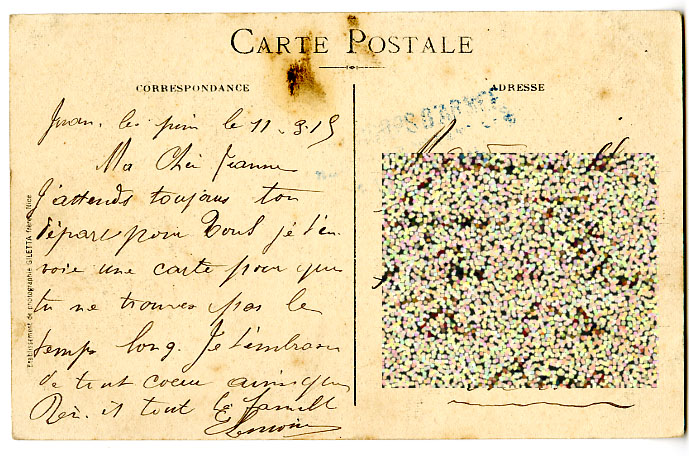 CARTE POSTALE
CORRESPONDANCE
ADRESSE
Juan. les pins le 11-3-15
Ma Chèr Jeanne
J'attends toujours ton
départ pour Toul je t'en
voie une carte pour que
tu ne trouves pas le
temps long. Je t'embrasse
de tout coeur ainsi que
et tout la famill
Etablissement de photographie GILETTA, frères, Nice